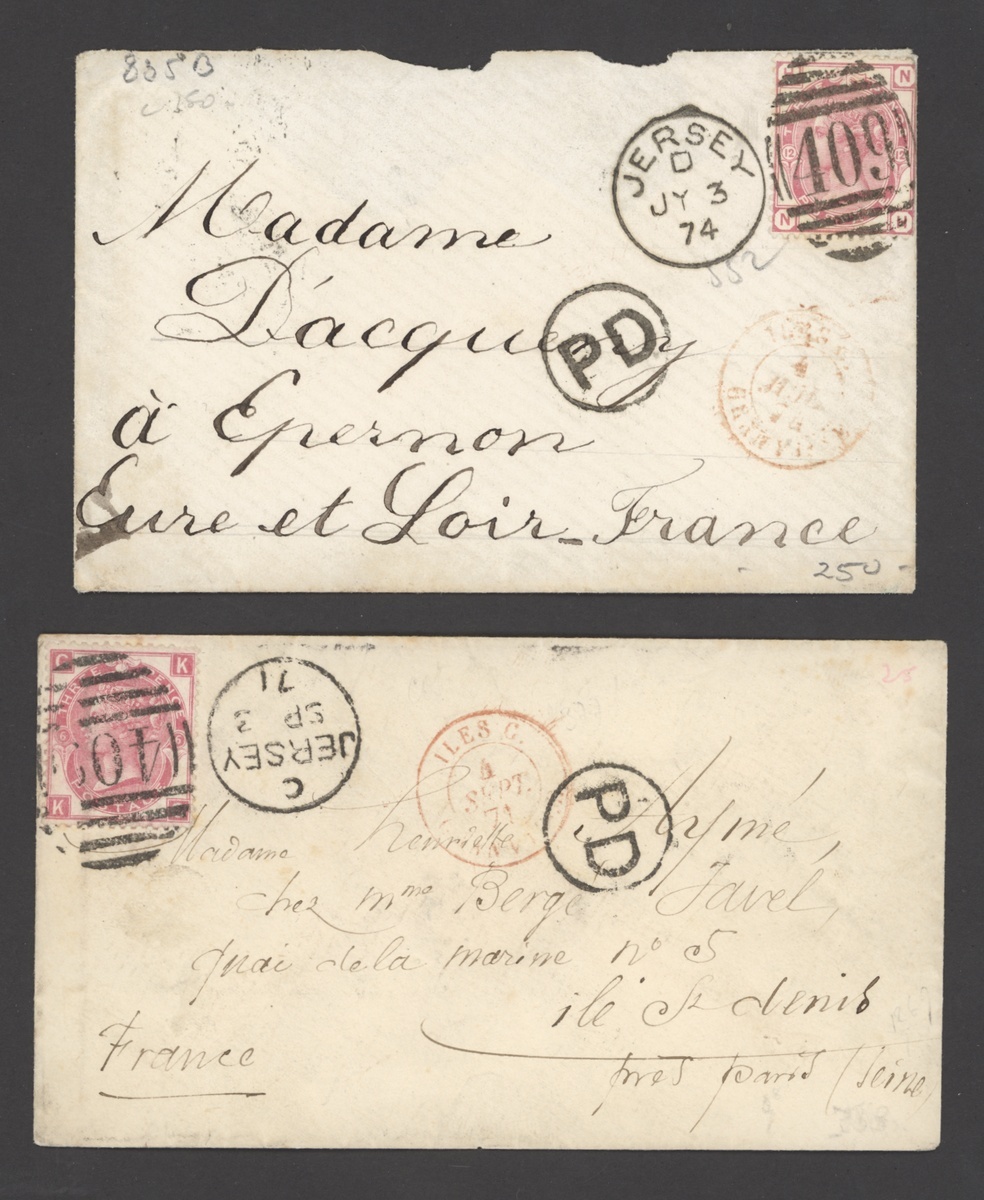 835 B
150
N
12
409
12
N H
JERSEY
D
JY 3
74
552
Madame
D'acqueny
PD
4
à Epernon
Eure et Loir - France
250
C K
THREE PENCE
POSTAGE
K
409
JERSEY
C
SP 3
71
ILES C.
4
SEPT.
71
PD
25
Madame Henriette Aymé,
chez mme Berge Javel,
quai de la marine no 5
ile St denis
près paris (Seine)
France